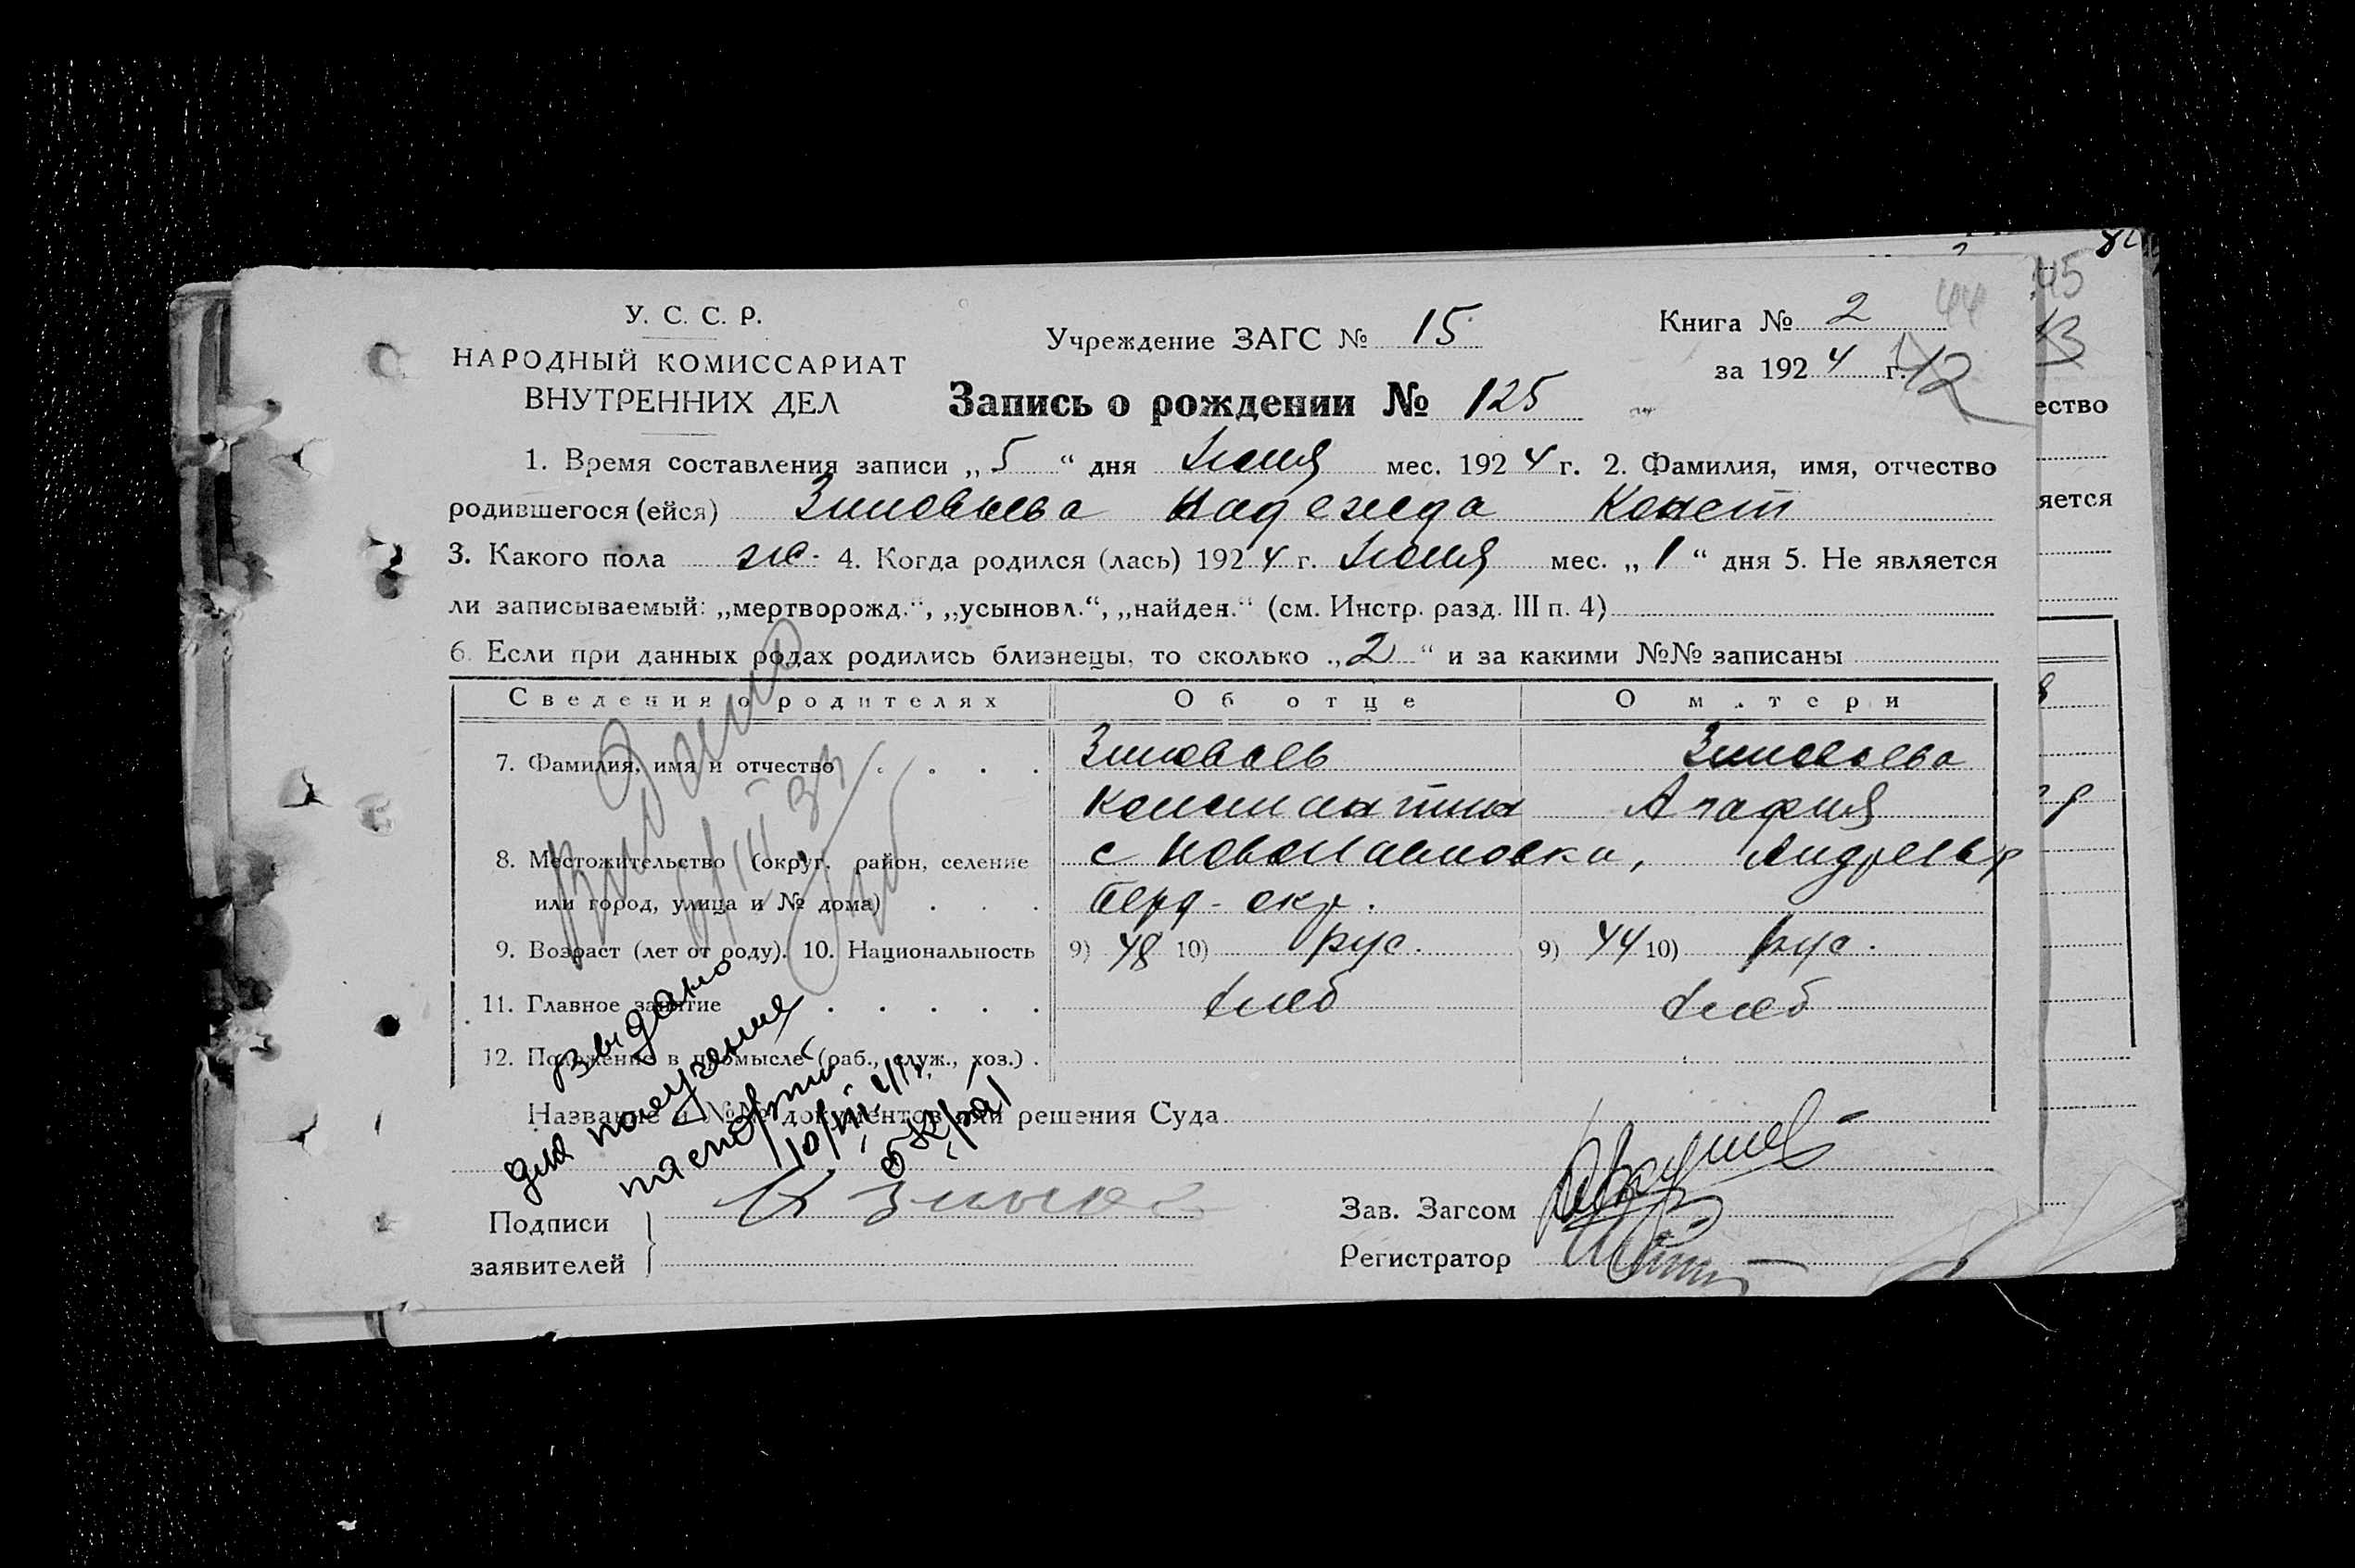 У. С. С. Р.
НАРОДНЫЙ КОМИССАРИАТ
ВНУТРЕННИХ ДЕЛ
Учреждение ЗАГС № 15
Книга № 2 44
за 1924 г. 42
Запись о рождении № 125
1. Время составления записи „5“ дня Июня мес. 1924 г. 2. Фамилия, имя, отчество
родившегося (ейся) Зиновьева Надежда Конст
3. Какого пола ж. 4. Когда родился (лась) 1924 г. Июня мес. „1“ дня 5. Не является
ли записываемый: „мертворожд.“, „усыновл.“, „найден.“ (см. Инстр. разд. III п. 4)
6. Если при данных родах родились близнецы, то сколько „2“ и за какими №№ записаны
Сведения о родителях Об отце О матери
7. Фамилия, имя и отчество . . . . Зиновьев Зиновьева
Константин Агафия
8. Местожительство (округ, район, селение с Новопавловка, Андреевн
или город, улица и № дома) . . . Берд- окр.
9. Возраст (лет от роду). 10. Национальность 9) 48 10) рус. 9) 44 10) рус.
11. Главное занятие . . . . . хлеб хлеб
12. Положение в промысле (раб., служ., хоз.) .
Название и №№ документов или решения Суда
выдано
для получения
паспорта
Подписи
заявителей
Зав. Загсом
Регистратор
45
43
ество
яется